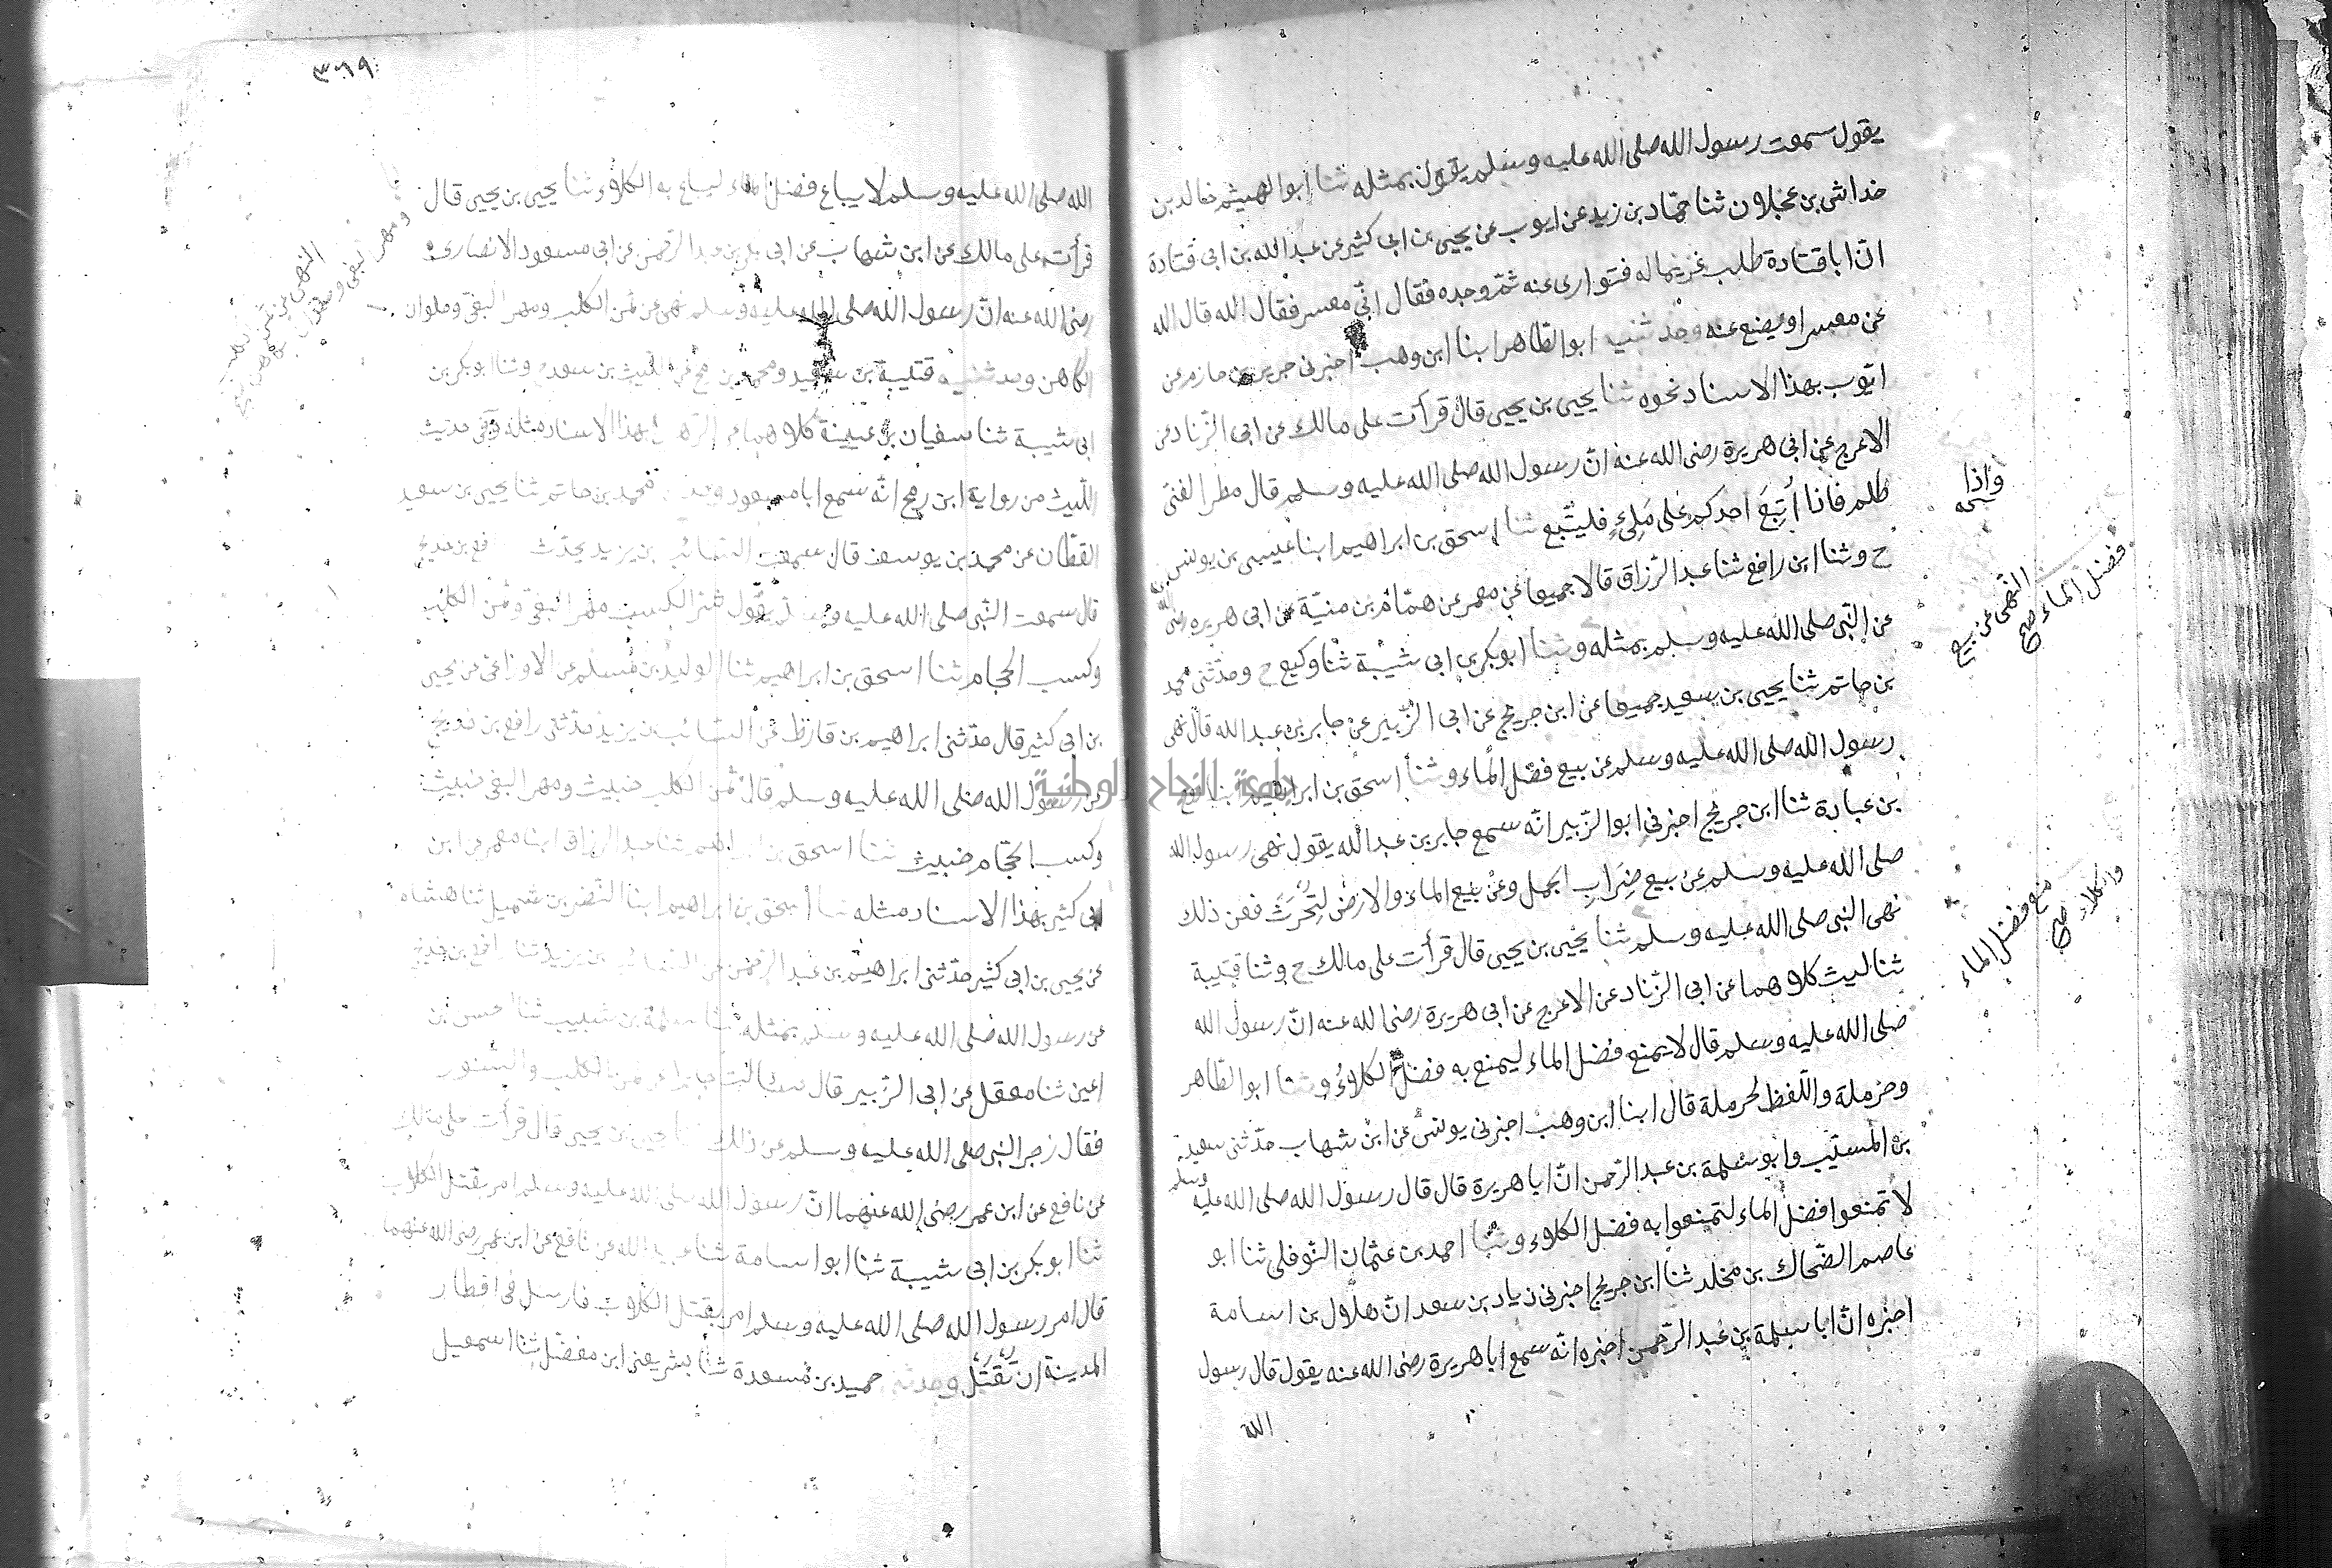 يقول سمعت رسول الله صلى الله عليه وسلم يقول بمثله ثنا ابو الهيثم خالد بن
خداش بن عجلان ثنا حماد بن زيد عن ايوب عن يحيى بن ابى كثير عن عبد الله بن ابى قتادة
انّ ابا قتادة طلب غريما له فتوارى عنه ثمّ وجده فقال انّى معسر فقال الله قال الله
عن معسر او يضع عنه وحدثنيه ابو الطاهر ابنا ابن وهب اخبرنى جرير بن حازم عن
ايّوب بهذا الاسناد نحوه ثنا يحيى بن يحيى قال قرأت على مالك عن ابى الزّناد عن
الاعرج عن ابى هريرة رضى الله عنه انّ رسول الله صلى الله عليه وسلم قال مطل الغنىّ
ظلم فاذا اُتبِعَ احدكم على مَلِئٍ فليتّبع ثنا اسحق بن ابراهيم ابنا عيسى بن يونس
ح وثنا ابن رافع ثنا عبد الرّزاق قالا جميعا عن معمر عن همّام بن منبّة عن ابى هريره رضى الله عنه
عن النّبى صلى الله عليه وسلم بمثله وثنا ابو بكر بن ابى شيبة ثنا وكيع ح وحدّثنى محمد
بن حاتم ثنا يحيى بن سعيد جميعا عن ابن جريج عن ابى الزّبير عن جابر بن عبد الله قال نهى
رسول الله صلى الله عليه وسلم عن بيع فضل الماء وثنا اسحق بن ابراهيم ابنا روح
بن عبادة ثنا ابن جريج اخبرنى ابو الزّبير انّه سمع جابر بن عبد الله يقول نهى رسول الله
صلى الله عليه وسلم عن بيع ضِرَابِ الجمل وعن بيع الماء والارض لِتُحْرَثَ فعن ذلك
نهى النبى صلى الله عليه وسلم ثنا يحيى بن يحيى قال قرأت على مالك ح وثنا قتيبة
ثنا ليث كلاهما عن ابى الزّناد عن الاعرج عن ابى هريرة رضى الله عنه انّ رسول الله
صلى الله عليه وسلم قال لا يمنع فضل الماء ليمنع به فضل الكلاء وثنا ابو الطاهر
وحرملة واللّفظ لحرملة قال ابنا ابن وهب اخبرنى يونس عن ابن شهاب حدّثنى سعيد
بن المسيّب وابو سلمة بن عبد الرّحمن انّ ابا هريرة قال قال رسول الله صلى الله عليه وسلم
لا تمنعوا فضل الماء لتمنعوا به فضل الكلاء وثنا احمد بن عثمان النّوفلى ثنا ابو
عاصم الضّحاك بن مخلد ثنا ابن جريج اخبرنى زياد بن سعد انّ هلال بن اسامة
اخبره انّ ابا سلمة بن عبد الرّحمن اخبره انّه سمع ابا هريرة رضى الله عنه يقول قال رسول
الله
واذا
صح
النّهى عن بيع
فضل الماء صح
منع فضل الماء
والكلاء صح
٣٦٩
الله صلى الله عليه وسلم لا يباع فضل الماء ليباع به الكلاء ثنا يحيى بن يحيى قال
قرأت على مالك عن ابن شهاب عن ابى بكر بن عبد الرّحمن عن ابى مسعود الانصارى
رضى الله عنه انّ رسول الله صلى الله عليه وسلم نهى عن ثمن الكلب ومهر البغىّ وحلوان
الكاهن وحدثنيه قتيبة بن سعيد ومحمد بن رمح عن الليث بن سعد وثنا ابو بكر بن
ابى شيبة ثنا سفيان بن عيينة كلاهما عن الزّهرى بهذا الاسناد مثله وفى حديث
اللّيث من رواية ابن رمح انّه سمع ابا مسعود وحدثنى محمد بن حاتم ثنا يحيى بن سعيد
القطّان عن محمد بن يوسف قال سمعت السّائب بن يزيد يحدّث رافع بن خديج
قال سمعت النّبى صلى الله عليه وسلم يقول شرّ الكسب مهر البغىّ وثمن الكلب
وكسب الحجام ثنا اسحق بن ابراهيم ثنا الوليد بن مسلم عن الاوزاعى عن يحيى
بن ابى كثير قال حدّثنى ابراهيم بن قارظ عن السّائب بن يزيد حدّثنى رافع بن خديج
عن رسول الله صلى الله عليه وسلم قال ثمن الكلب خبيث ومهر البغى خبيث
وكسب الحجّام خبيث ثنا اسحق بن ابراهيم ثنا عبد الرزاق ابنا معمر عن ابن
ابى كثير بهذا الاسناد مثله ثنا اسحق بن ابراهيم ابنا النّضر بن شميل ثنا هشام
عن يحيى بن ابى كثير حدّثنى ابراهيم بن عبد الرّحمن عن السّائب بن يزيد ثنا رافع بن خديج
عن رسول الله صلى الله عليه وسلم بمثله ثنا سلمة بن شبيب ثنا الحسن بن
اعين ثنا معقل عن ابى الزّبير قال سالت جابرا عن ثمن الكلب والسّنور
فقال زجر النبى صلى الله عليه وسلم عن ذلك ثنا يحيى بن يحيى قال قرأت على مالك
عن نافع عن ابن عمر رضى الله عنهما انّ رسول الله صلى الله عليه وسلم امر بقتل الكلاب
ثنا ابو بكر بن ابى شيبة ثنا ابو اسامة ثنا عبيد الله عن نافع عن ابن عمر رضى الله عنهما
قال امر رسول الله صلى الله عليه وسلم امر بقتل الكلاب فارسل فى اقطار
المدينة ان تُقْتَل وحدثنى حميد بن مسعدة ثنا بشر يعنى ابن مفضل ثنا اسمعيل
جامعة النجاح الوطنية